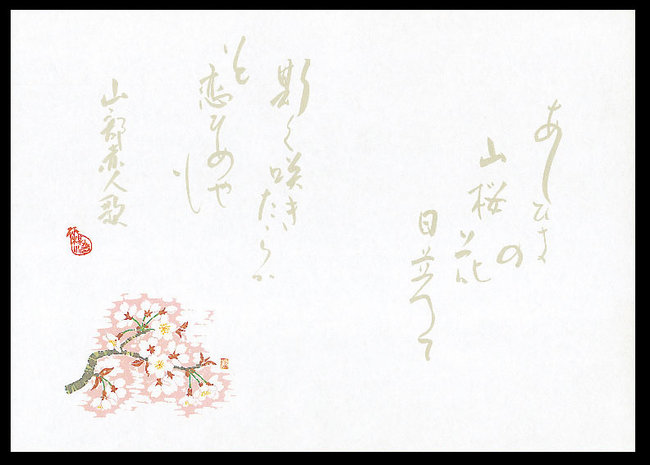 あしひき
の
山桜花
日並へて
斯く咲き
たらば
いと
恋ひめや
も
山部赤人歌